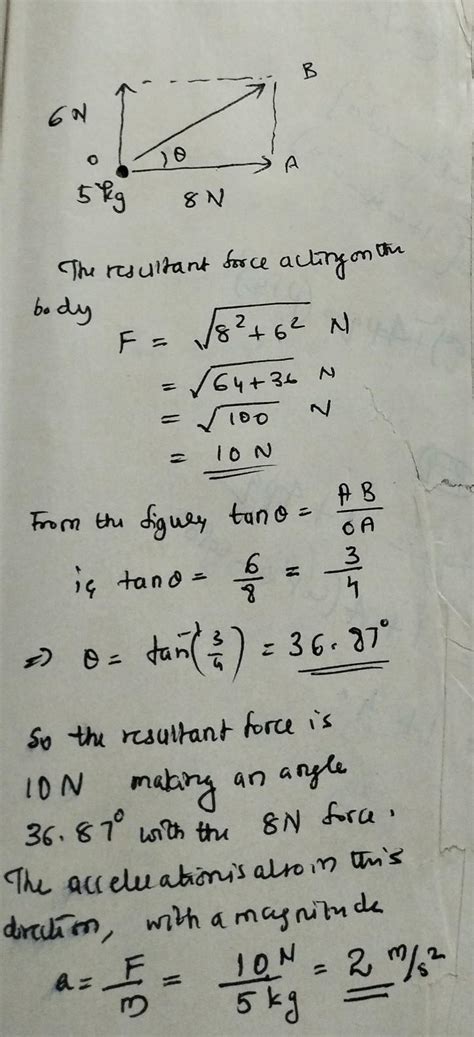 B
6N
θ
0
A
5 kg
8N
The resultant force acting on the
body
F = √8² + 6² N
= √64+36 N
= √100 N
= 10 N
From the figure, tanθ = AB/OA
ie tanθ = 6/8 = 3/4
⇒ θ = tan⁻¹(3/4) = 36.87°
So the resultant force is
10N making an angle
36.87° with the 8N force.
The acceleration is also in this
direction, with a magnitude
a = F/m = 10N/5 kg = 2 m/s²